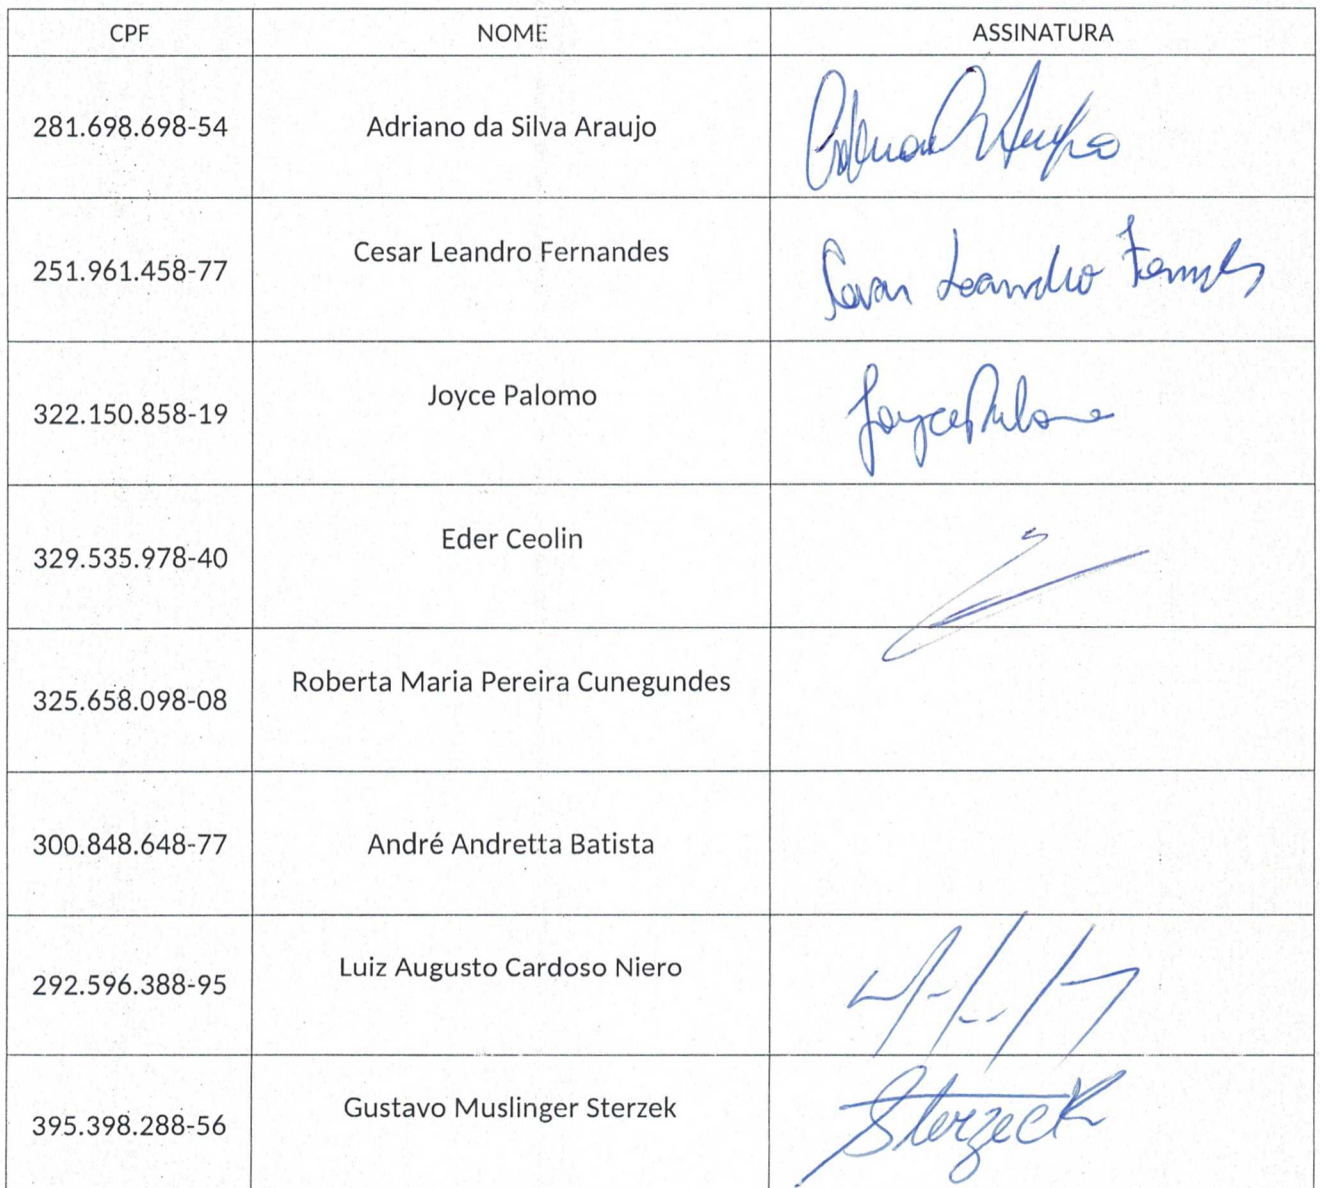 CPF NOME ASSINATURA
281.698.698-54 Adriano da Silva Araujo Araujo
251.961.458-77 Cesar Leandro Fernandes Cesar Leandro Fernandes
322.150.858-19 Joyce Palomo Joyce Palomo
329.535.978-40 Eder Ceolin
325.658.098-08 Roberta Maria Pereira Cunegundes
300.848.648-77 André Andretta Batista
292.596.388-95 Luiz Augusto Cardoso Niero
395.398.288-56 Gustavo Muslinger Sterzek Sterzeck